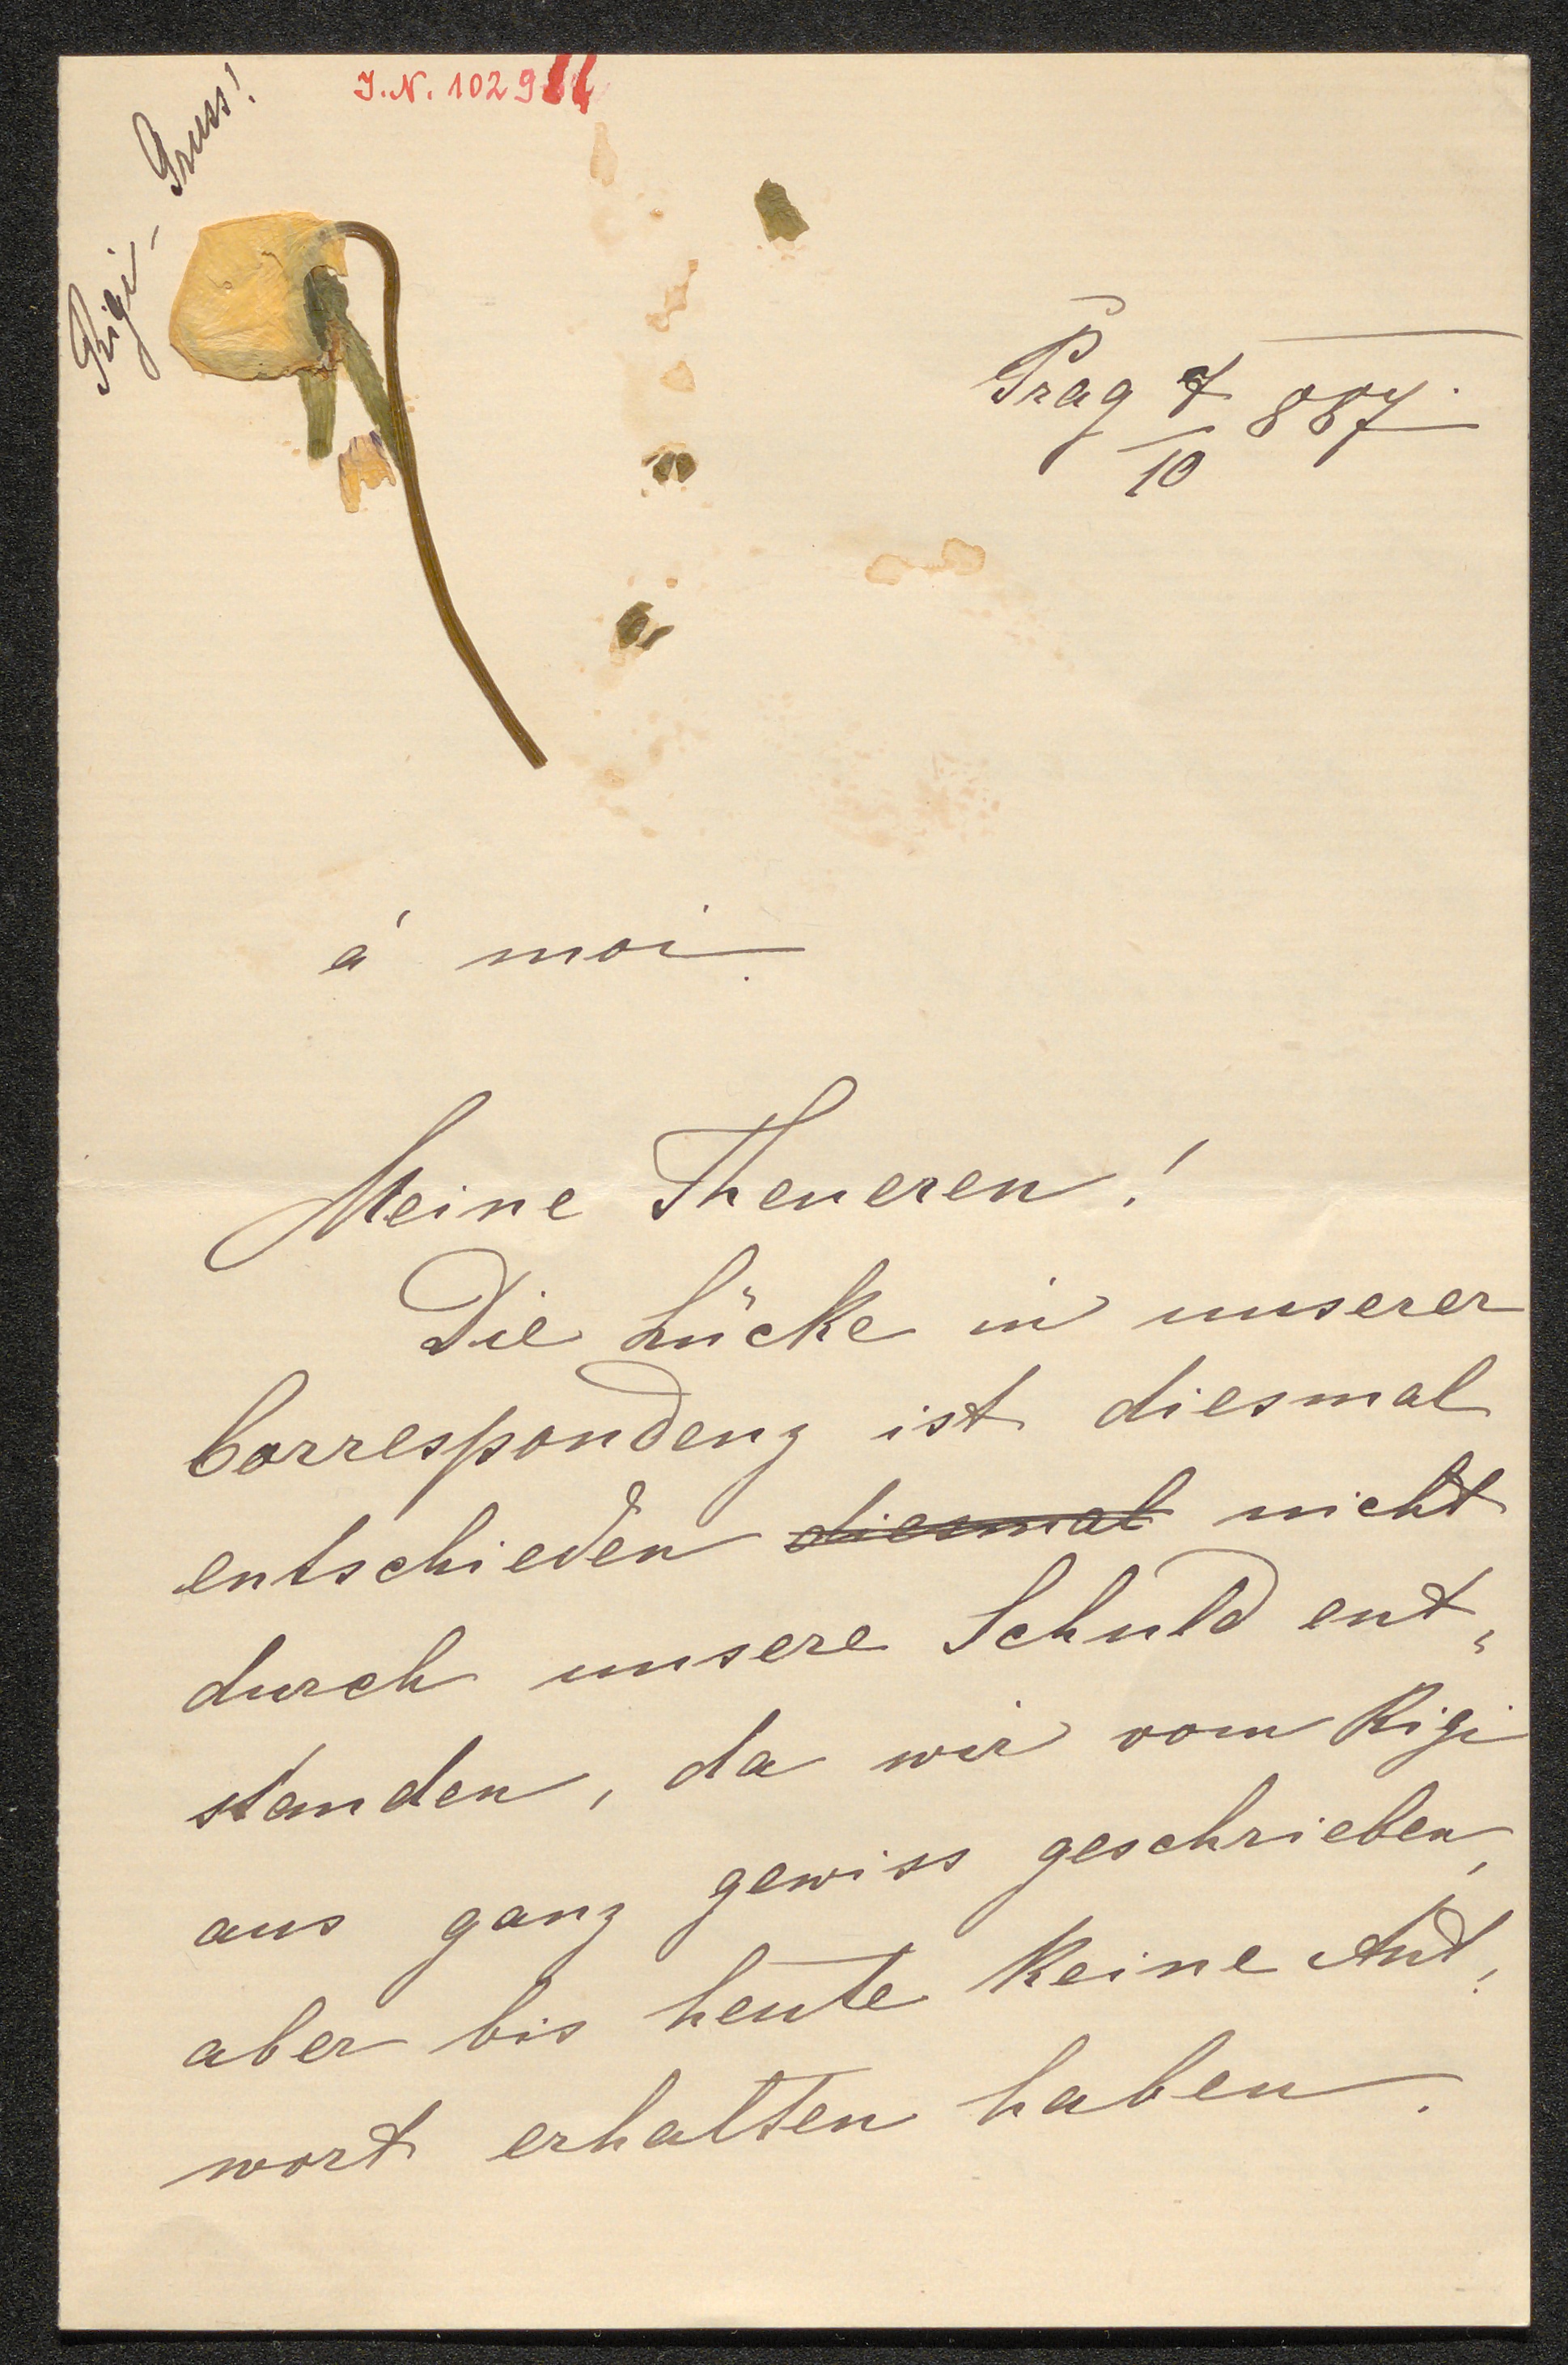 Rigi-Gruss!
J.N. 1029
Prag 7/10 887.
á moi.
Meine Theueren!
Die Lücke in unserer
Correspondenz ist diesmal
entschieden diesmal nicht
durch unsere Schuld ent„
standen, da wir vom Rigi
aus ganz gewiss geschrieben,
aber bis heute keine Ant„
wort erhalten haben.